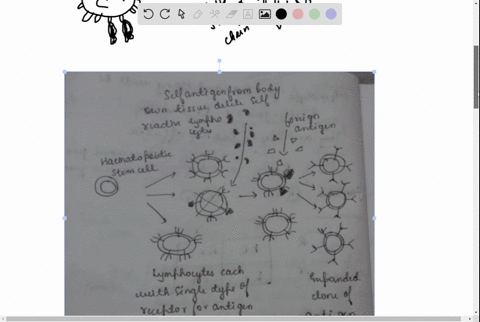 chain
Self antigen from body
own tissue delete self
reactive lympho
cyte
foreign
antigen
Haematopoietic
Stem cell
lymphocytes each
with single type of
receptor for antigen
Expanded
clone of
antigen